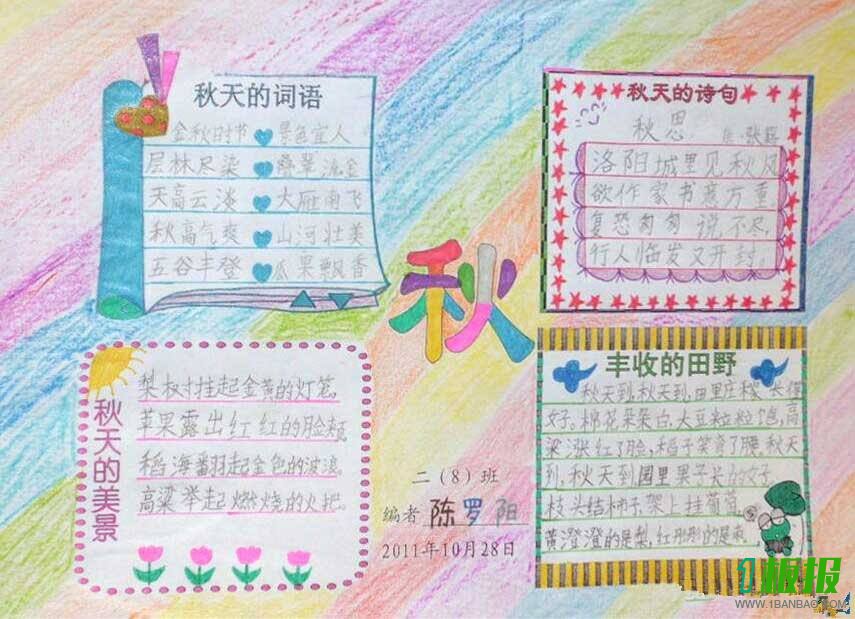 秋天的词语
金秋时节 景色宜人
层林尽染 叠翠流金
天高云淡 大雁南飞
秋高气爽 山河壮美
五谷丰登 瓜果飘香
秋天的诗句
秋思
张籍
洛阳城里见秋风
欲作家书意万重
复恐匆匆说不尽,
行人临发又开封。
秋
秋天的美景
梨树挂起金黄的灯笼
苹果露出红红的脸颊
稻海翻起金色的波浪
高粱举起燃烧的火把
丰收的田野
秋天到,秋天到,田里庄稼长得
好。棉花朵朵白,大豆粒粒饱,高
梁涨红了脸,稻子笑弯了腰。秋天
到,秋天到,园里果子长的好,
枝头结柿子,架上挂葡萄,
黄澄澄的是梨,红彤彤的是枣。
二(8)班
编者 陈罗阳
2011年10月28日
1板报
WWW.1BANBAO.COM